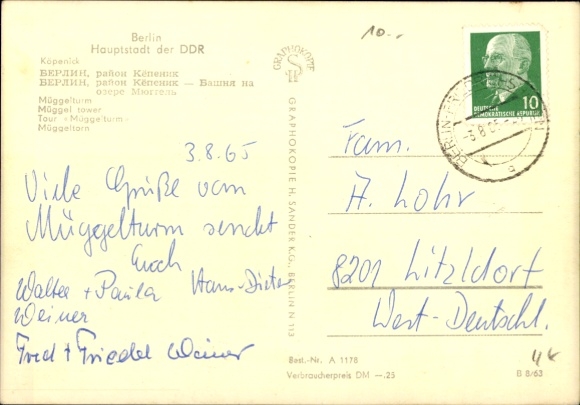 Berlin
Hauptstadt der DDR
Köpenick
БЕРЛИН, район Кёпеник
БЕРЛИН, район Кёпеник — Башня на
озере Мюггель
Müggelturm
Müggel tower
Tour «Müggelturm»
Müggeltorn
3.8.65
Viele Grüße vom
Müggelturm sendet
Euch
Walter + Paula Hans-Dieter
Weiner
Fred + Friedel Weiner
GRAPHOKOPIE
GRAPHOKOPIE H. SANDER K.G., BERLIN N 113
10.-
DEUTSCHE
DEMOKRATISCHE REPUBLIK
10
BERLIN
Fam.
A. Lohr
8201 Litzldorf
West-Deutschl.
Best.-Nr. A 1178
Verbraucherpreis DM —.25
B 8/63